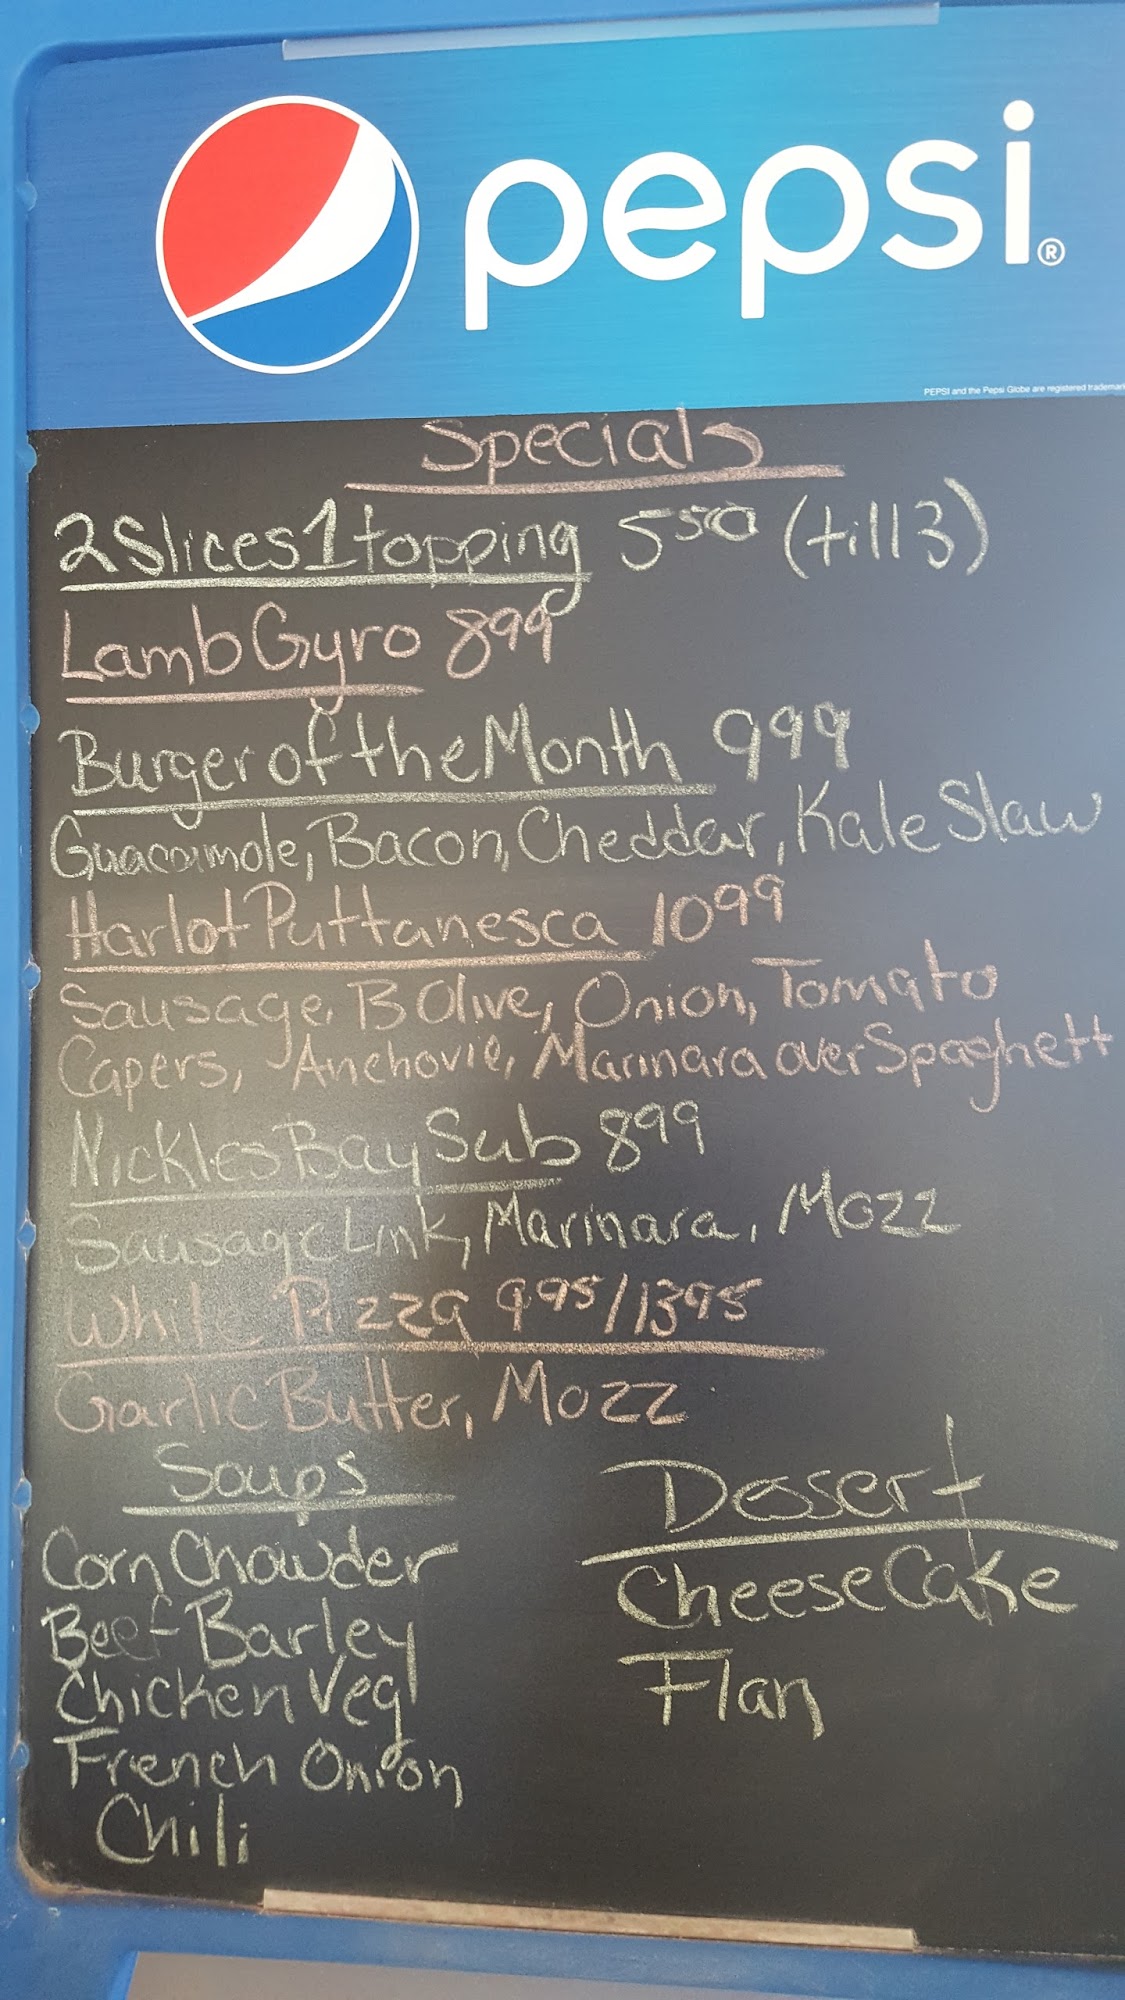 pepsi®
PEPSI and the Pepsi Globe are registered trademar
Specials
2 Slices 1 topping 5 50 (till 3)
Lamb Gyro 8 99
Burger of the Month 9 99
Guacamole, Bacon, Cheddar, Kale Slaw
Harlot Puttanesca 10 99
Sausage, B Olive, Onion, Tomato
Capers, Anchovie, Marinara over Spaghett
Nickles Bay Sub 8 99
Sausage Link, Marinara, Mozz
White Pizza 9 95/13 95
Garlic Butter, Mozz
Soups
Corn Chowder
Beef Barley
Chicken Veg
French Onion
Chili
Dessert
CheeseCake
Flan